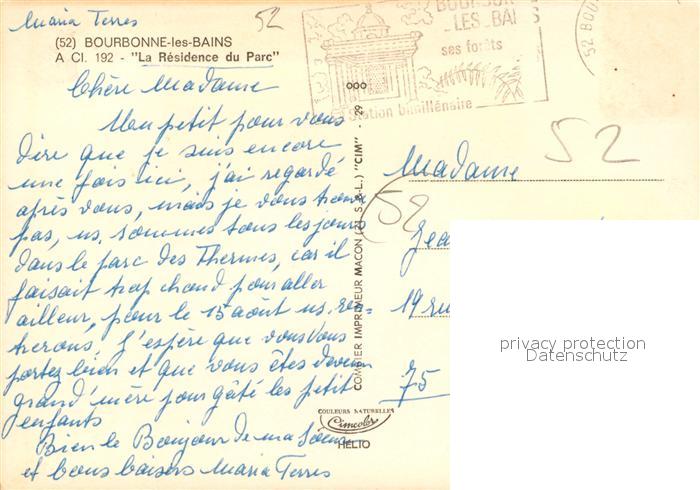 Maria Terres
52
(52) BOURBONNE-les-BAINS
A CI. 192 - "La Résidence du Parc"
Chère Madame
Un petit pour vous
dire que je suis encore
une fois ici, j'ai regardé
après vous, mais je vous trouve
pas, ns. sommes tous les jours
dans le parc des Thermes, car il
faisait trop chaud pour aller
ailleur, pour le 15 août ns. ren-
trerons, j'espère que vous vous
portez bien et que vous êtes devenu
grand'mère pour gâté les petit
enfants
Bien le Bonjour de ma Soeur
et bons baisers Maria Terres
LES-BAINS
ses forêts
Station bimillénaire
52
COMBIER IMPRIMEUR MACON (71. S.-&-L.) "CIM"
COULEURS NATURELLES
Cimcolor
HELIO
Madame
52
52
19
75
privacy protection
Datenschutz